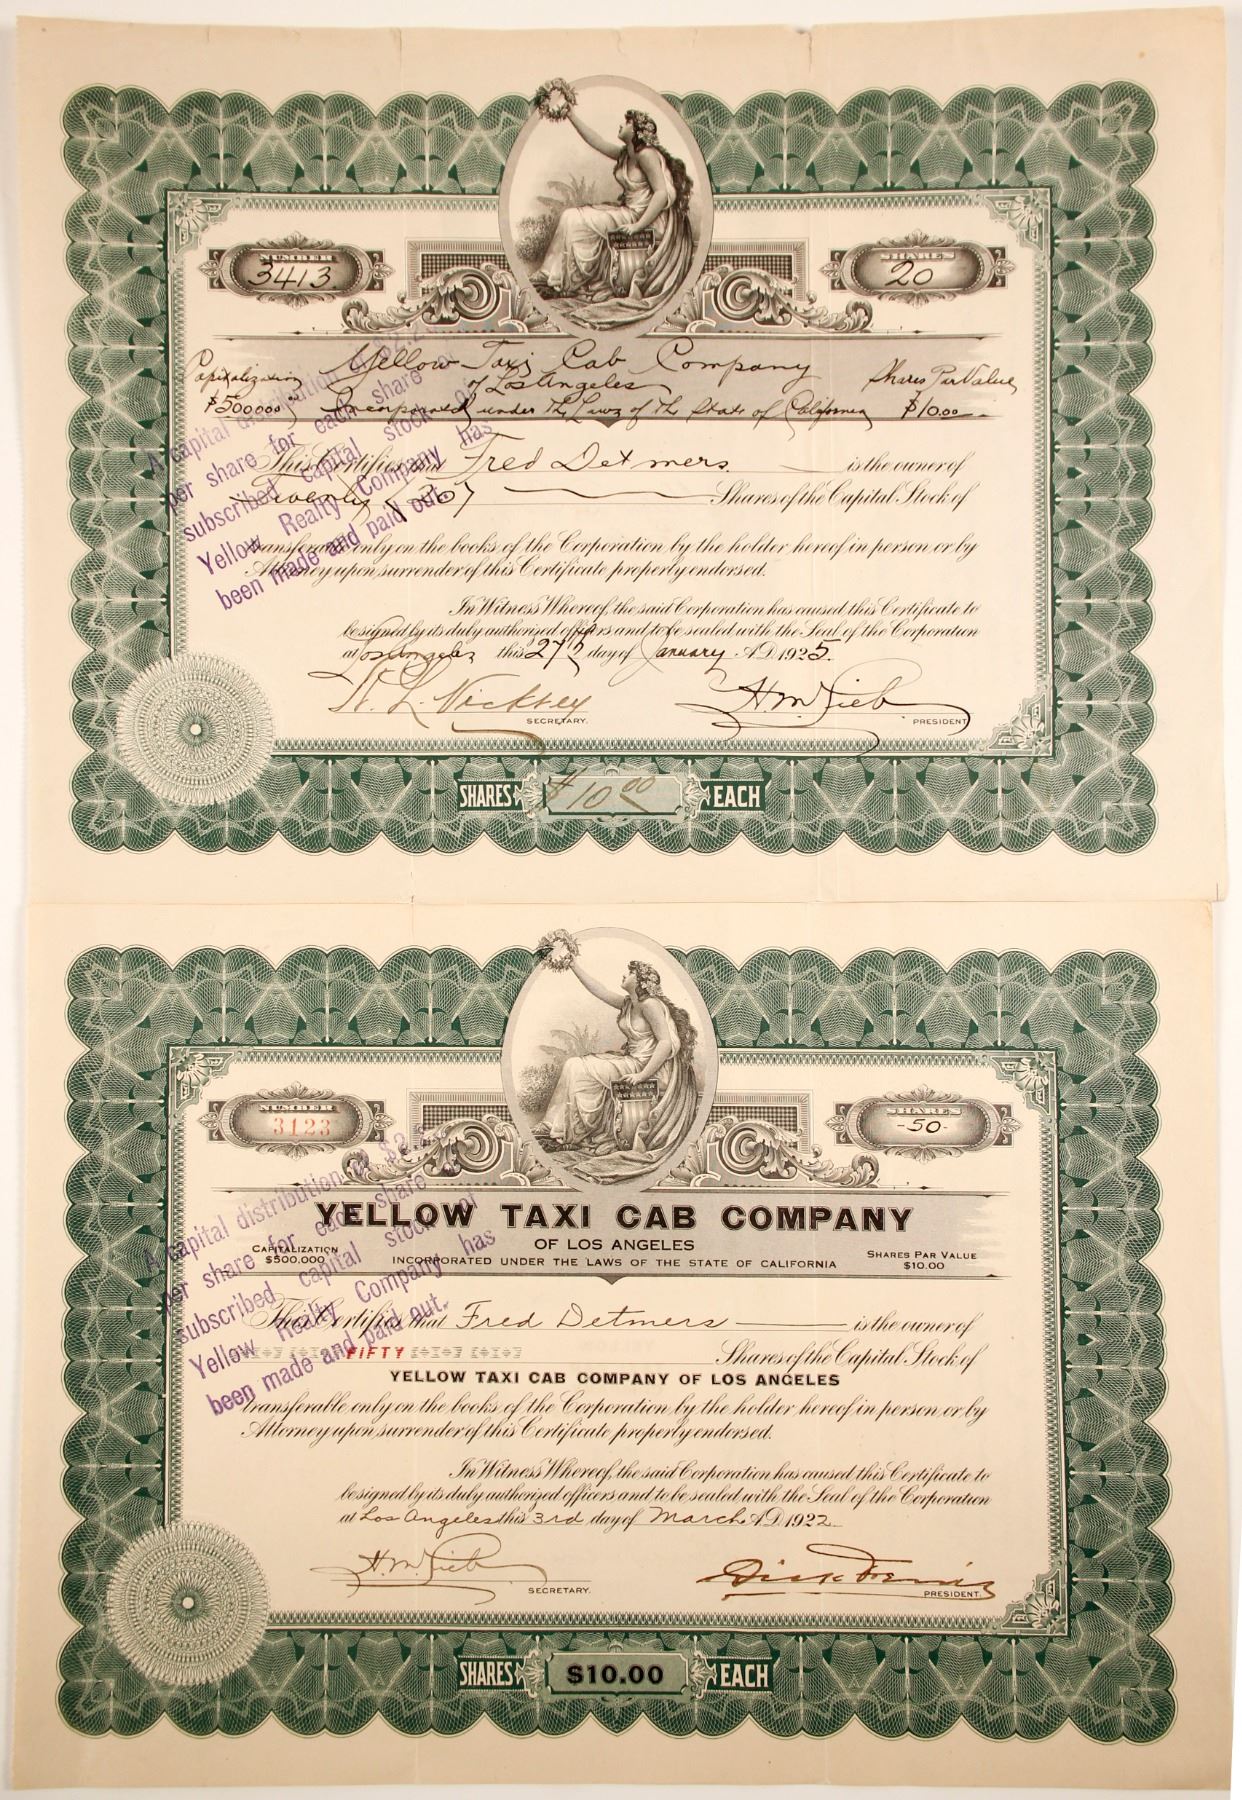 NUMBER
3413
SHARES
20
Capitalization
$500,000.00
Yellow Taxi Cab Company
of Los Angeles
Incorporated under The Laws of The State of California
Shares Par Value
$10.00
This Certifies that Fred Detmers is the owner of
Twenty (20) Shares of the Capital Stock of
transferable only on the books of the Corporation by the holder hereof in person or by
Attorney upon surrender of this Certificate properly endorsed.
In Witness Whereof, the said Corporation has caused this Certificate to
be signed by its duly authorized officers and to be sealed with the Seal of the Corporation
at Los Angeles this 27th day of January A.D. 1925.
SECRETARY.
PRESIDENT
SHARES $10.00 EACH
A capital distribution of $2.
per share for each share of
subscribed capital stock of
Yellow Realty Company has
been made and paid out.
NUMBER
3123
SHARES
-50-
YELLOW TAXI CAB COMPANY
OF LOS ANGELES
CAPITALIZATION
$500,000
INCORPORATED UNDER THE LAWS OF THE STATE OF CALIFORNIA
SHARES PAR VALUE
$10.00
This Certifies that Fred Detmers is the owner of
FIFTY Shares of the Capital Stock of
YELLOW TAXI CAB COMPANY OF LOS ANGELES
transferable only on the books of the Corporation by the holder hereof in person or by
Attorney upon surrender of this Certificate properly endorsed.
In Witness Whereof, the said Corporation has caused this Certificate to
be signed by its duly authorized officers and to be sealed with the Seal of the Corporation
at Los Angeles this 3rd day of March A.D. 1922
SECRETARY.
PRESIDENT.
SHARES $10.00 EACH
A capital distribution of $2.
per share for each share
subscribed capital stock of
Yellow Realty Company has
been made and paid out.